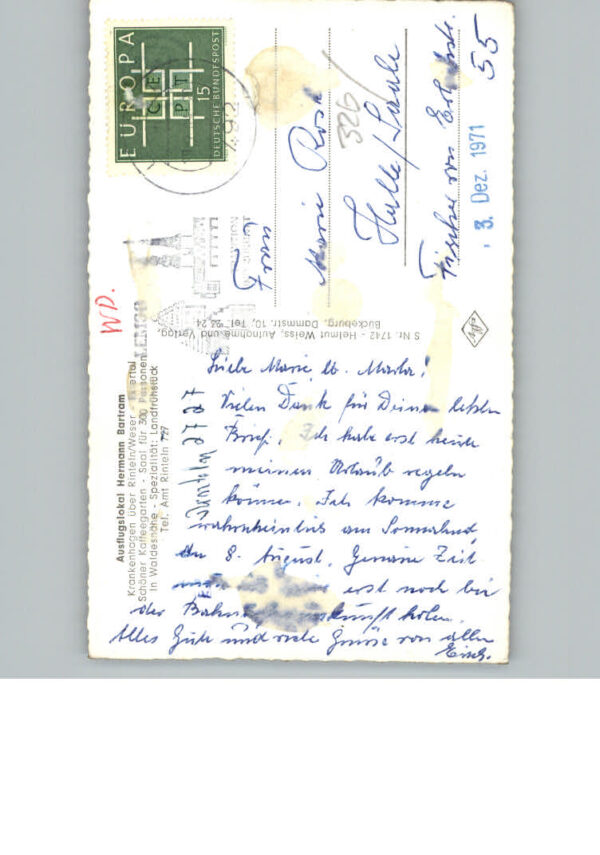 Ausflugslokal Hermann Bartram
Krankenhagen über Rinteln/Weser - Exertal
Schöner Kaffeegarten - Saal für 300 Personen
in Waldesnähe - Spezialität: Landfrühstück
Tel. Amt Rinteln 727
WD.
LEMGO
EUROPA
CEPT
15
DEUTSCHE BUNDESPOST
S Nr. 1742 - Helmut Weiss, Aufnahme und Verlag,
Bückeburg, Dammstr. 10, Tel. 24 24
Liebe Marie lb. Marla!
Vielen Dank für Deinen letzten
Brief. Ich habe erst heute
meinen Urlaub regeln
können. Ich komme
wahrscheinlich am Sonnabend
den 8. August. Genaue Zeit
erst noch bei
der Bahn holen.
Alles Gute und viele Grüsse von allen
Frau
Marie Rose
326
Halle/Saale
Fischer von
55
3. Dez. 1971